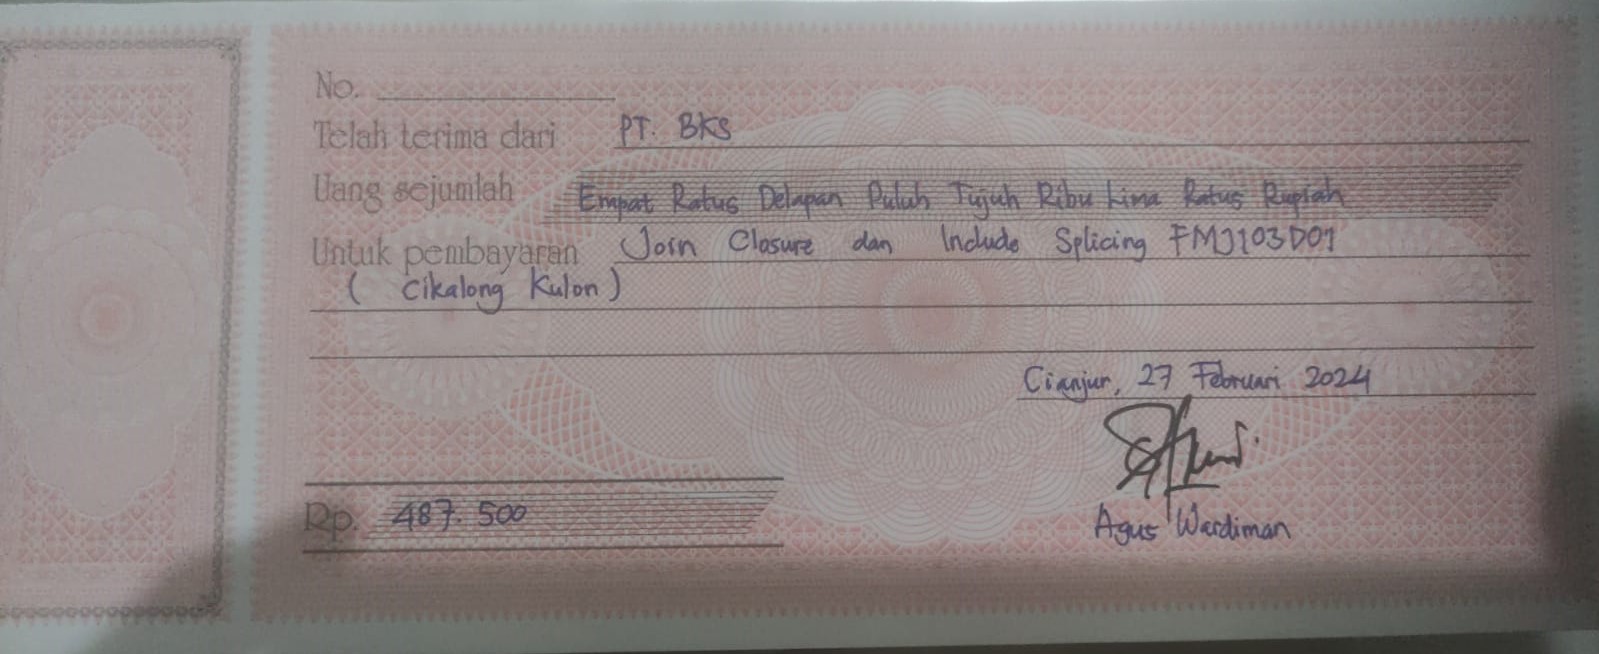 No.
Telah terima dari PT. BKS
Uang sejumlah Empat Ratus Delapan Puluh Tujuh Ribu Lima Ratus Rupiah
Untuk pembayaran Join Closure dan Include Splicing FMJ103D01
( Cikalong Kulon )
Cianjur, 27 Februari 2024
Rp. 487.500
Agus Wardiman